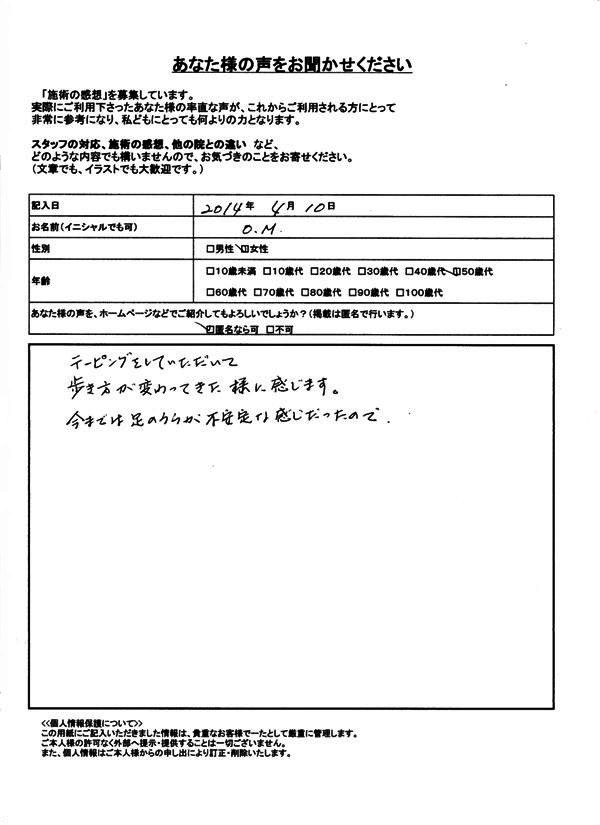 あなた様の声をお聞かせください
「施術の感想」を募集しています。
実際にご利用下さったあなた様の率直な声が、これからご利用される方にとって
非常に参考になり、私どもにとっても何よりの力となります。
スタッフの対応、施術の感想、他の院との違い など、
どのような内容でも構いませんので、お気づきのことをお寄せください。
(文章でも、イラストでも大歓迎です。)
記入日 2014年 4月 10日
お名前(イニシャルでも可) O.M.
性別 □男性 ☑女性
年齢 □10歳未満 □10歳代 □20歳代 □30歳代 □40歳代 ☑50歳代
□60歳代 □70歳代 □80歳代 □90歳代 □100歳代
あなた様の声を、ホームページなどでご紹介してもよろしいでしょうか?(掲載は匿名で行います。)
☑匿名なら可 □不可
テーピングをしていただいて
歩き方が変わってきた様に感じます。
今までは足のうらが不安定な感じだったので.
<<個人情報保護について>>
この用紙にご記入いただきました情報は、貴重なお客様で一たとして厳重に管理します。
ご本人様の許可なく外部へ提示・提供することは一切ございません。
また、個人情報はご本人様からの申し出により訂正・削除いたします。